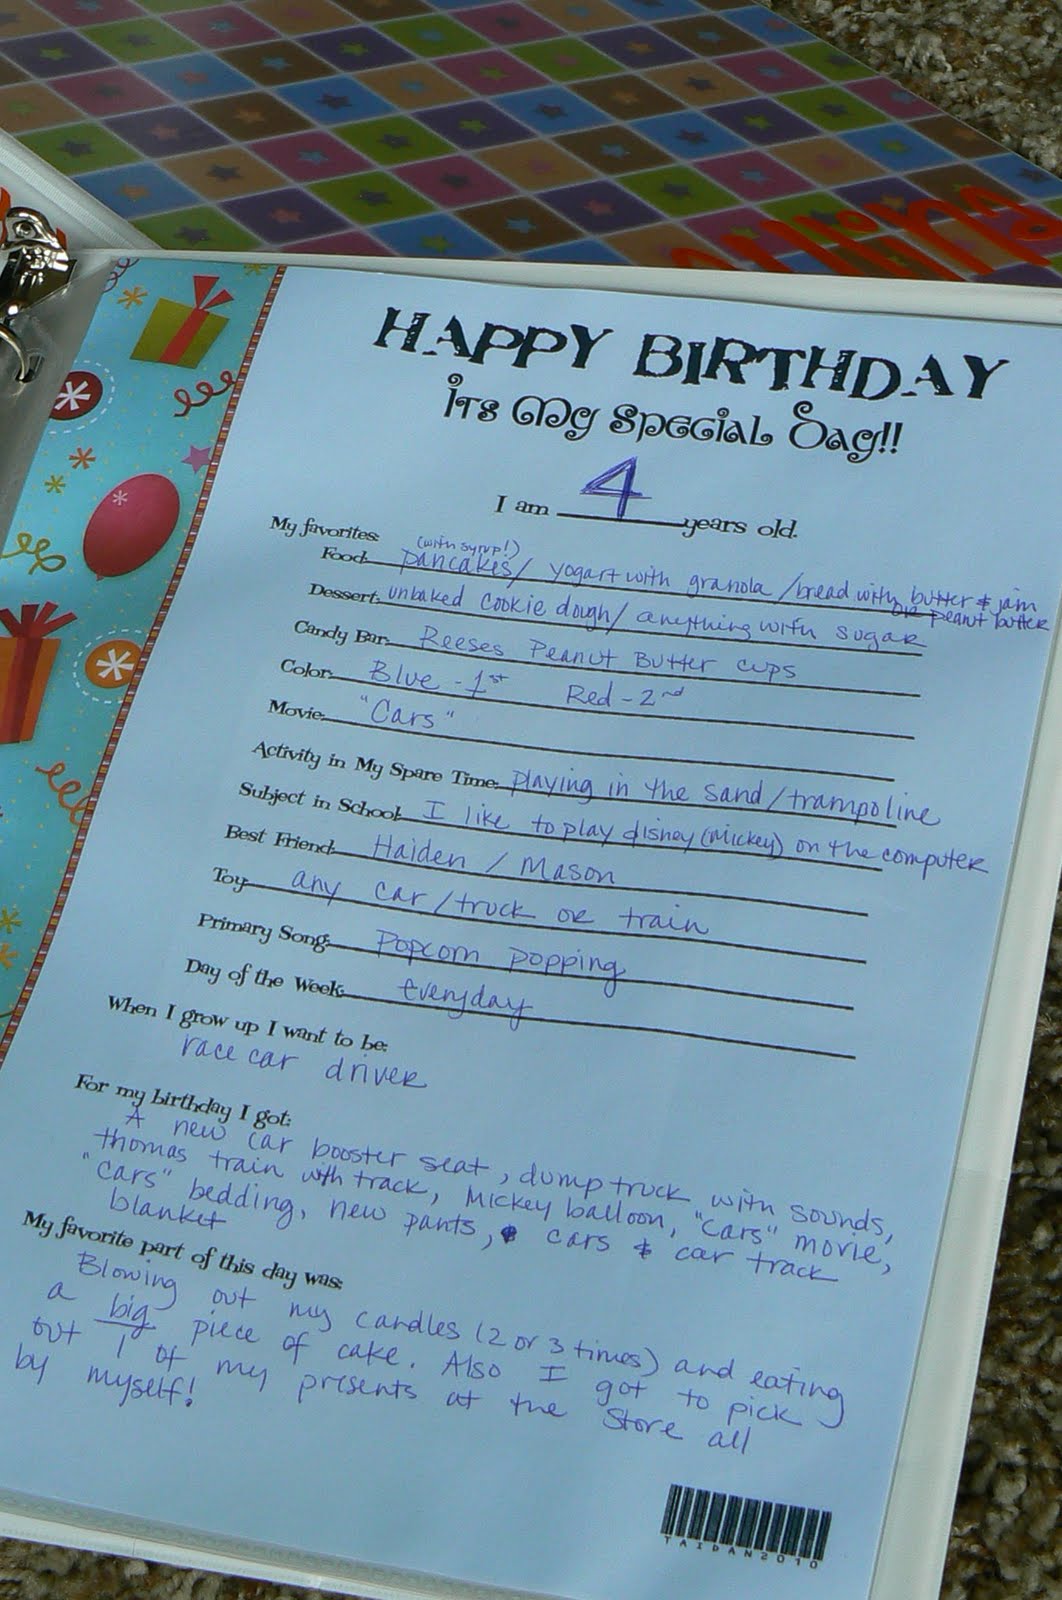 HAPPY BIRTHDAY
Its My Special Day!!
I am 4 years old.
My favorites:
(with syrup!)
Food: pancakes/ yogart with granola /bread with butter & jam
or peanut butter
Dessert: unbaked cookie dough/ anything with sugar
Candy Bar: Reeses Peanut Butter cups
Color: Blue - 1st Red - 2nd
Movie: "Cars"
Activity in My Spare Time: playing in the sand/trampoline
Subject in School: I like to play disney (mickey) on the computer
Best Friend: Haiden / Mason
Toy: any car/truck or train
Primary Song: Popcorn popping
Day of the Week: Everyday
When I grow up I want to be:
race car driver
For my birthday I got:
A new car booster seat, dump truck with sounds,
thomas train with track, Mickey balloon, "Cars" movie,
"Cars" bedding, new pants, cars & car track
blanket
My favorite part of this day was:
Blowing out my candles (2 or 3 times) and eating
a big piece of cake. Also I got to pick
out 1 of my presents at the store all
by myself!
TAIDAN2010